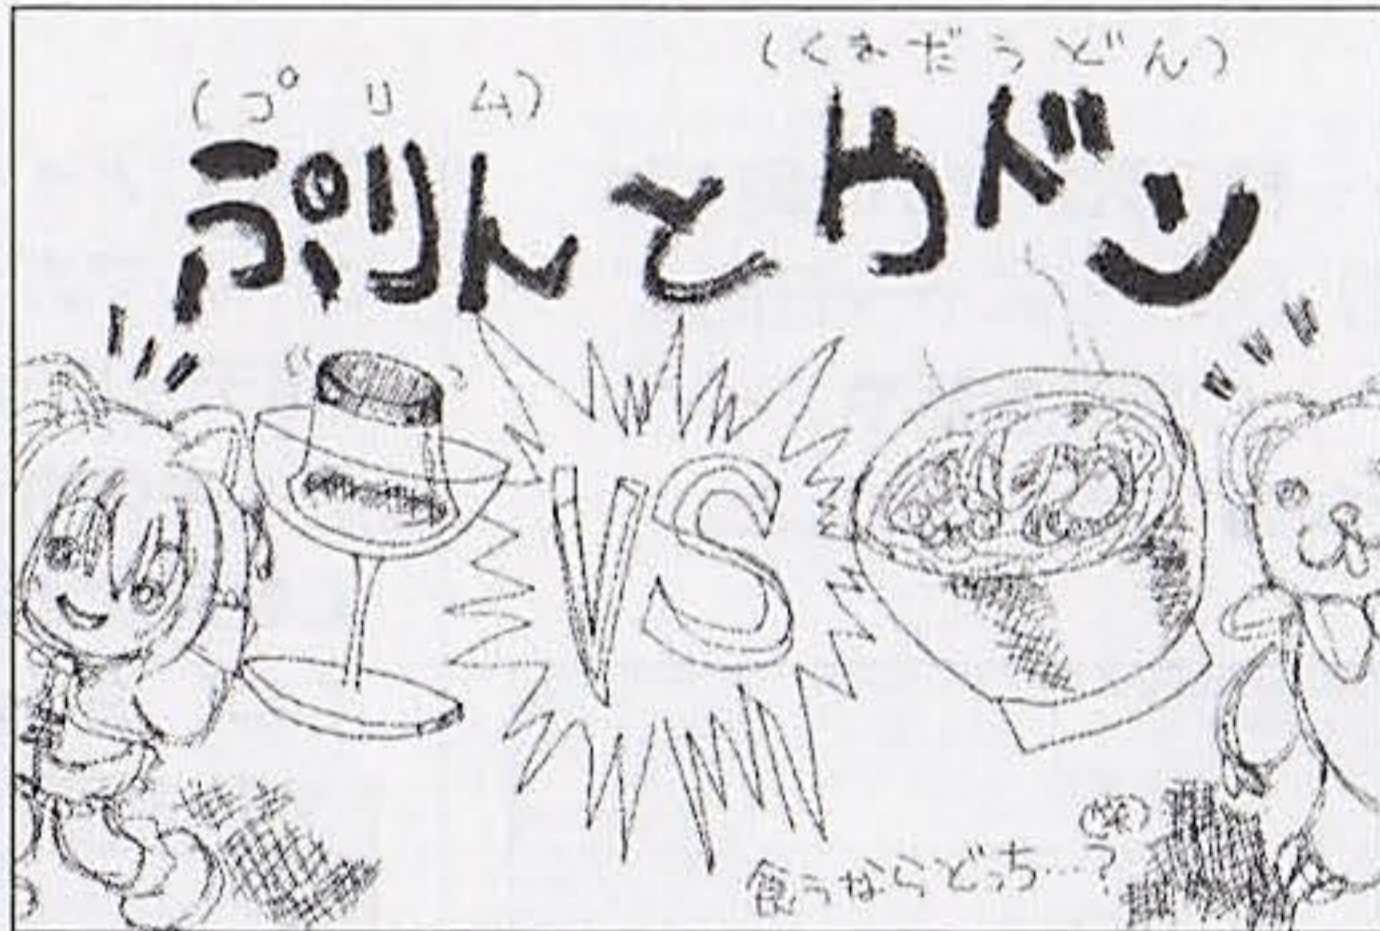 (プリム)
(くまだうどん)
ぷりんとウドン
VS
食うならどっち…？(笑)